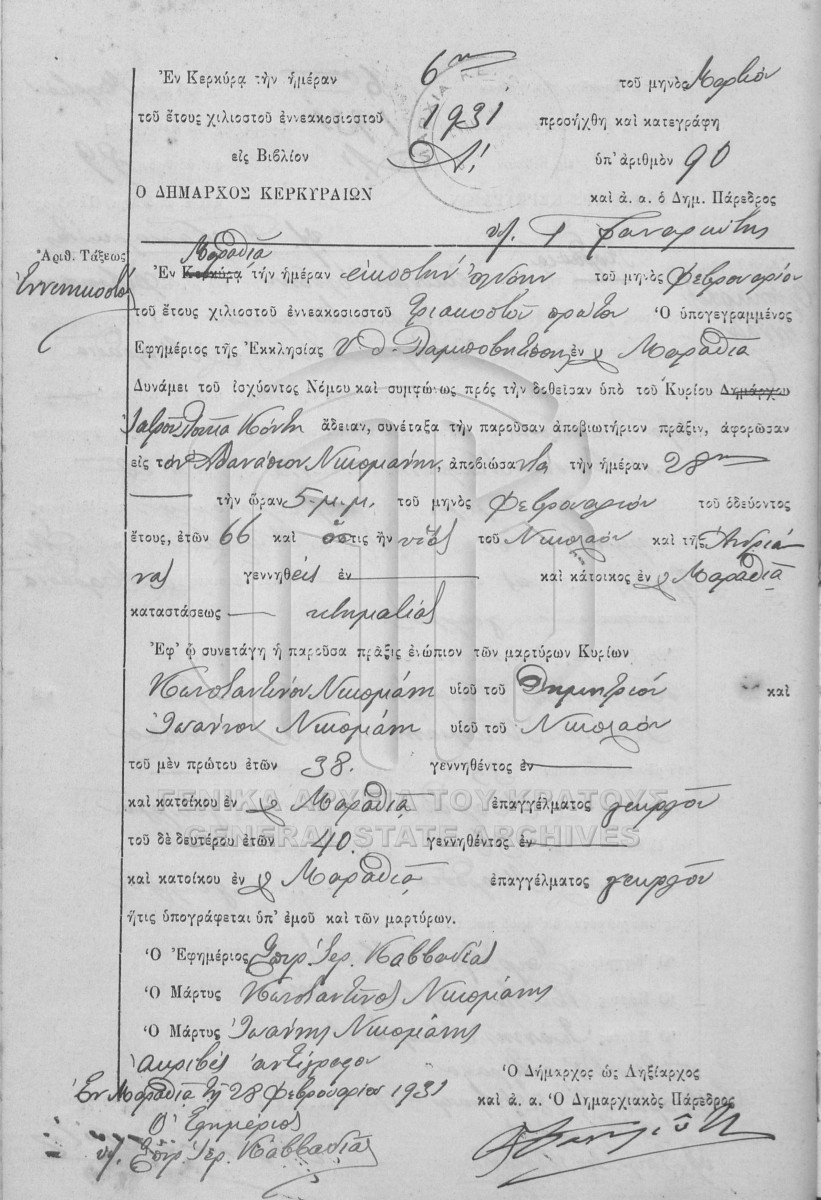 Ἐν Κερκύρᾳ τὴν ἡμέραν 6ην τοῦ μηνὸς Μαρτίου
τοῦ ἔτους χιλιοστοῦ ἐννεακοσιοστοῦ 1931 προσήχθη καὶ κατεγράφη
εἰς Βιβλίον Δ! ὑπ' ἀριθμὸν 90
Ο ΔΗΜΑΡΧΟΣ ΚΕΡΚΥΡΑΙΩΝ καὶ ἀ. α. ὁ Δημ. Πάρεδρος
Ἀριθ. Τάξεως
Ἐννενηκοστός
Μαραθιᾷ
Ἐν Κερκύρᾳ τὴν ἡμέραν εἰκοστὴν ὀγδόην τοῦ μηνὸς Φεβρουαρίου
τοῦ ἔτους χιλιοστοῦ ἐννεακοσιοστοῦ τριακοστοῦ πρώτου Ὁ ὑπογεγραμμένος
Ἐφημέριος τῆς Ἐκκλησίας ἐν Μαραθιᾷ
Δυνάμει τοῦ ἰσχύοντος Νόμου καὶ συμφώνως πρὸς τὴν δοθεῖσαν ὑπὸ τοῦ Κυρίου Δημάρχου
Ἰατροῦ Κόντη ἄδειαν, συνέταξα τὴν παροῦσαν ἀποβιωτήριον πρᾶξιν, ἀφορῶσαν
εἰς τὸν Ἀθανάσιον Νικομιάνην, ἀποβιώσαντα τὴν ἡμέραν 28ην
τὴν ὥραν 5 μ.μ. τοῦ μηνὸς Φεβρουαρίου τοῦ ὁδεύοντος
ἔτους, ἐτῶν 66 καὶ ὅστις ἦν υἱὸς τοῦ Νικολάου καὶ τῆς Ἀνδριά
νας γεννηθεὶς ἐν καὶ κάτοικος ἐν Μαραθιᾷ
καταστάσεως κτηματίας
Ἐφ' ᾧ συνετάγη ἡ παροῦσα πρᾶξις ἐνώπιον τῶν μαρτύρων Κυρίων
Κωνσταντίνου Νικομιάνη υἱοῦ τοῦ Δημητρίου καὶ
Ἰωάννου Νικομιάνη υἱοῦ τοῦ Νικολάου
τοῦ μὲν πρώτου ἐτῶν 38. γεννηθέντος ἐν
καὶ κατοίκου ἐν Μαραθιᾷ ἐπαγγέλματος γεωργοῦ
τοῦ δὲ δευτέρου ἐτῶν 40. γεννηθέντος ἐν
καὶ κατοίκου ἐν Μαραθιᾷ ἐπαγγέλματος γεωργοῦ
ἥτις ὑπογράφεται ὑπ' ἐμοῦ καὶ τῶν μαρτύρων.
Ὁ Ἐφημέριος Σπυρ. Ἱερ. Καββαδίας
Ὁ Μάρτυς Κωνσταντῖνος Νικομιάνης
Ὁ Μάρτυς Ἰωάννης Νικομιάνης
Ἀκριβὲς ἀντίγραφον
Ἐν Μαραθιᾷ τῇ 28 Φεβρουαρίου 1931
Ὁ Ἐφημέριος
υγ. Σπυρ. Ἱερ. Καββαδίας
Ὁ Δήμαρχος ὡς Ληξίαρχος
καὶ ἀ. α. Ὁ Δημαρχιακὸς Πάρεδρος
ΓΕΝΙΚΑ ΑΡΧΕΙΑ ΤΟΥ ΚΡΑΤΟΥΣ
GENERAL STATE ARCHIVES